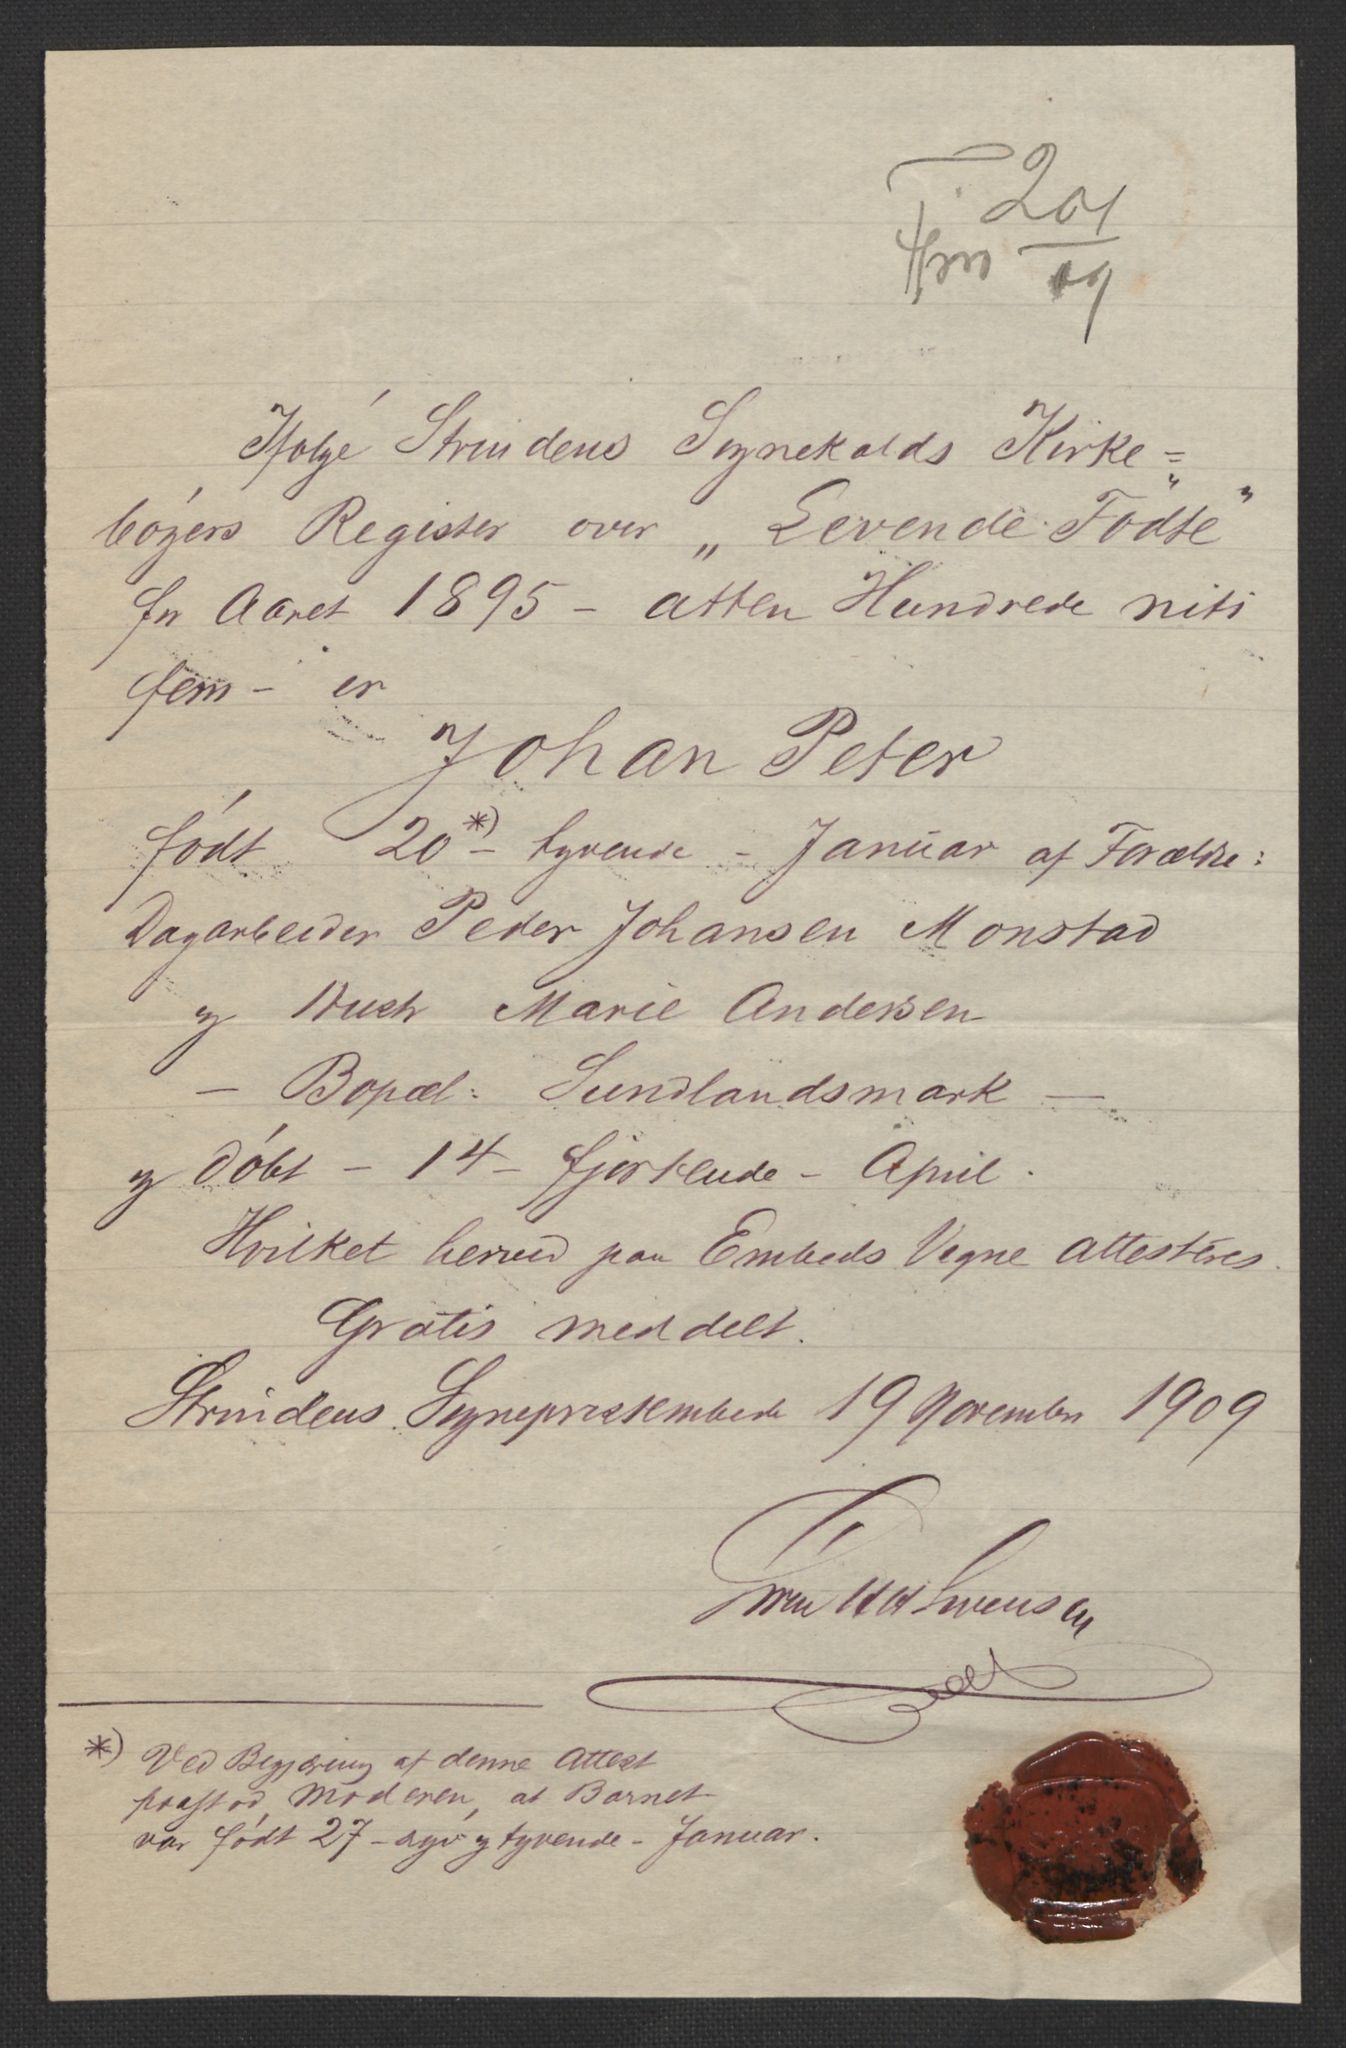 201
09
Ifølge Strindens Sognekalds Kirke=
bøgers Register over „Levende Födte"
for Aaret 1895 - atten Hundrede niti
fem - er
Johan Peter
født 20*) - tyvende - Januar af Forældre:
Dagarbeider Peder Johansen Monstad
og Hustr Marie Anderssen
- Bopæl: Sundlandsmark -
og døbt - 14 - fjortende - April.
Hvilket herved paa Embeds Vegne attesteres.
Gratis meddelt.
Strindens Sogneprestembede 19 November 1909
*) Ved Begjæring af denne Attest
paastod Moderen, at Barnet
var født 27 - syv og tyvende - Januar.